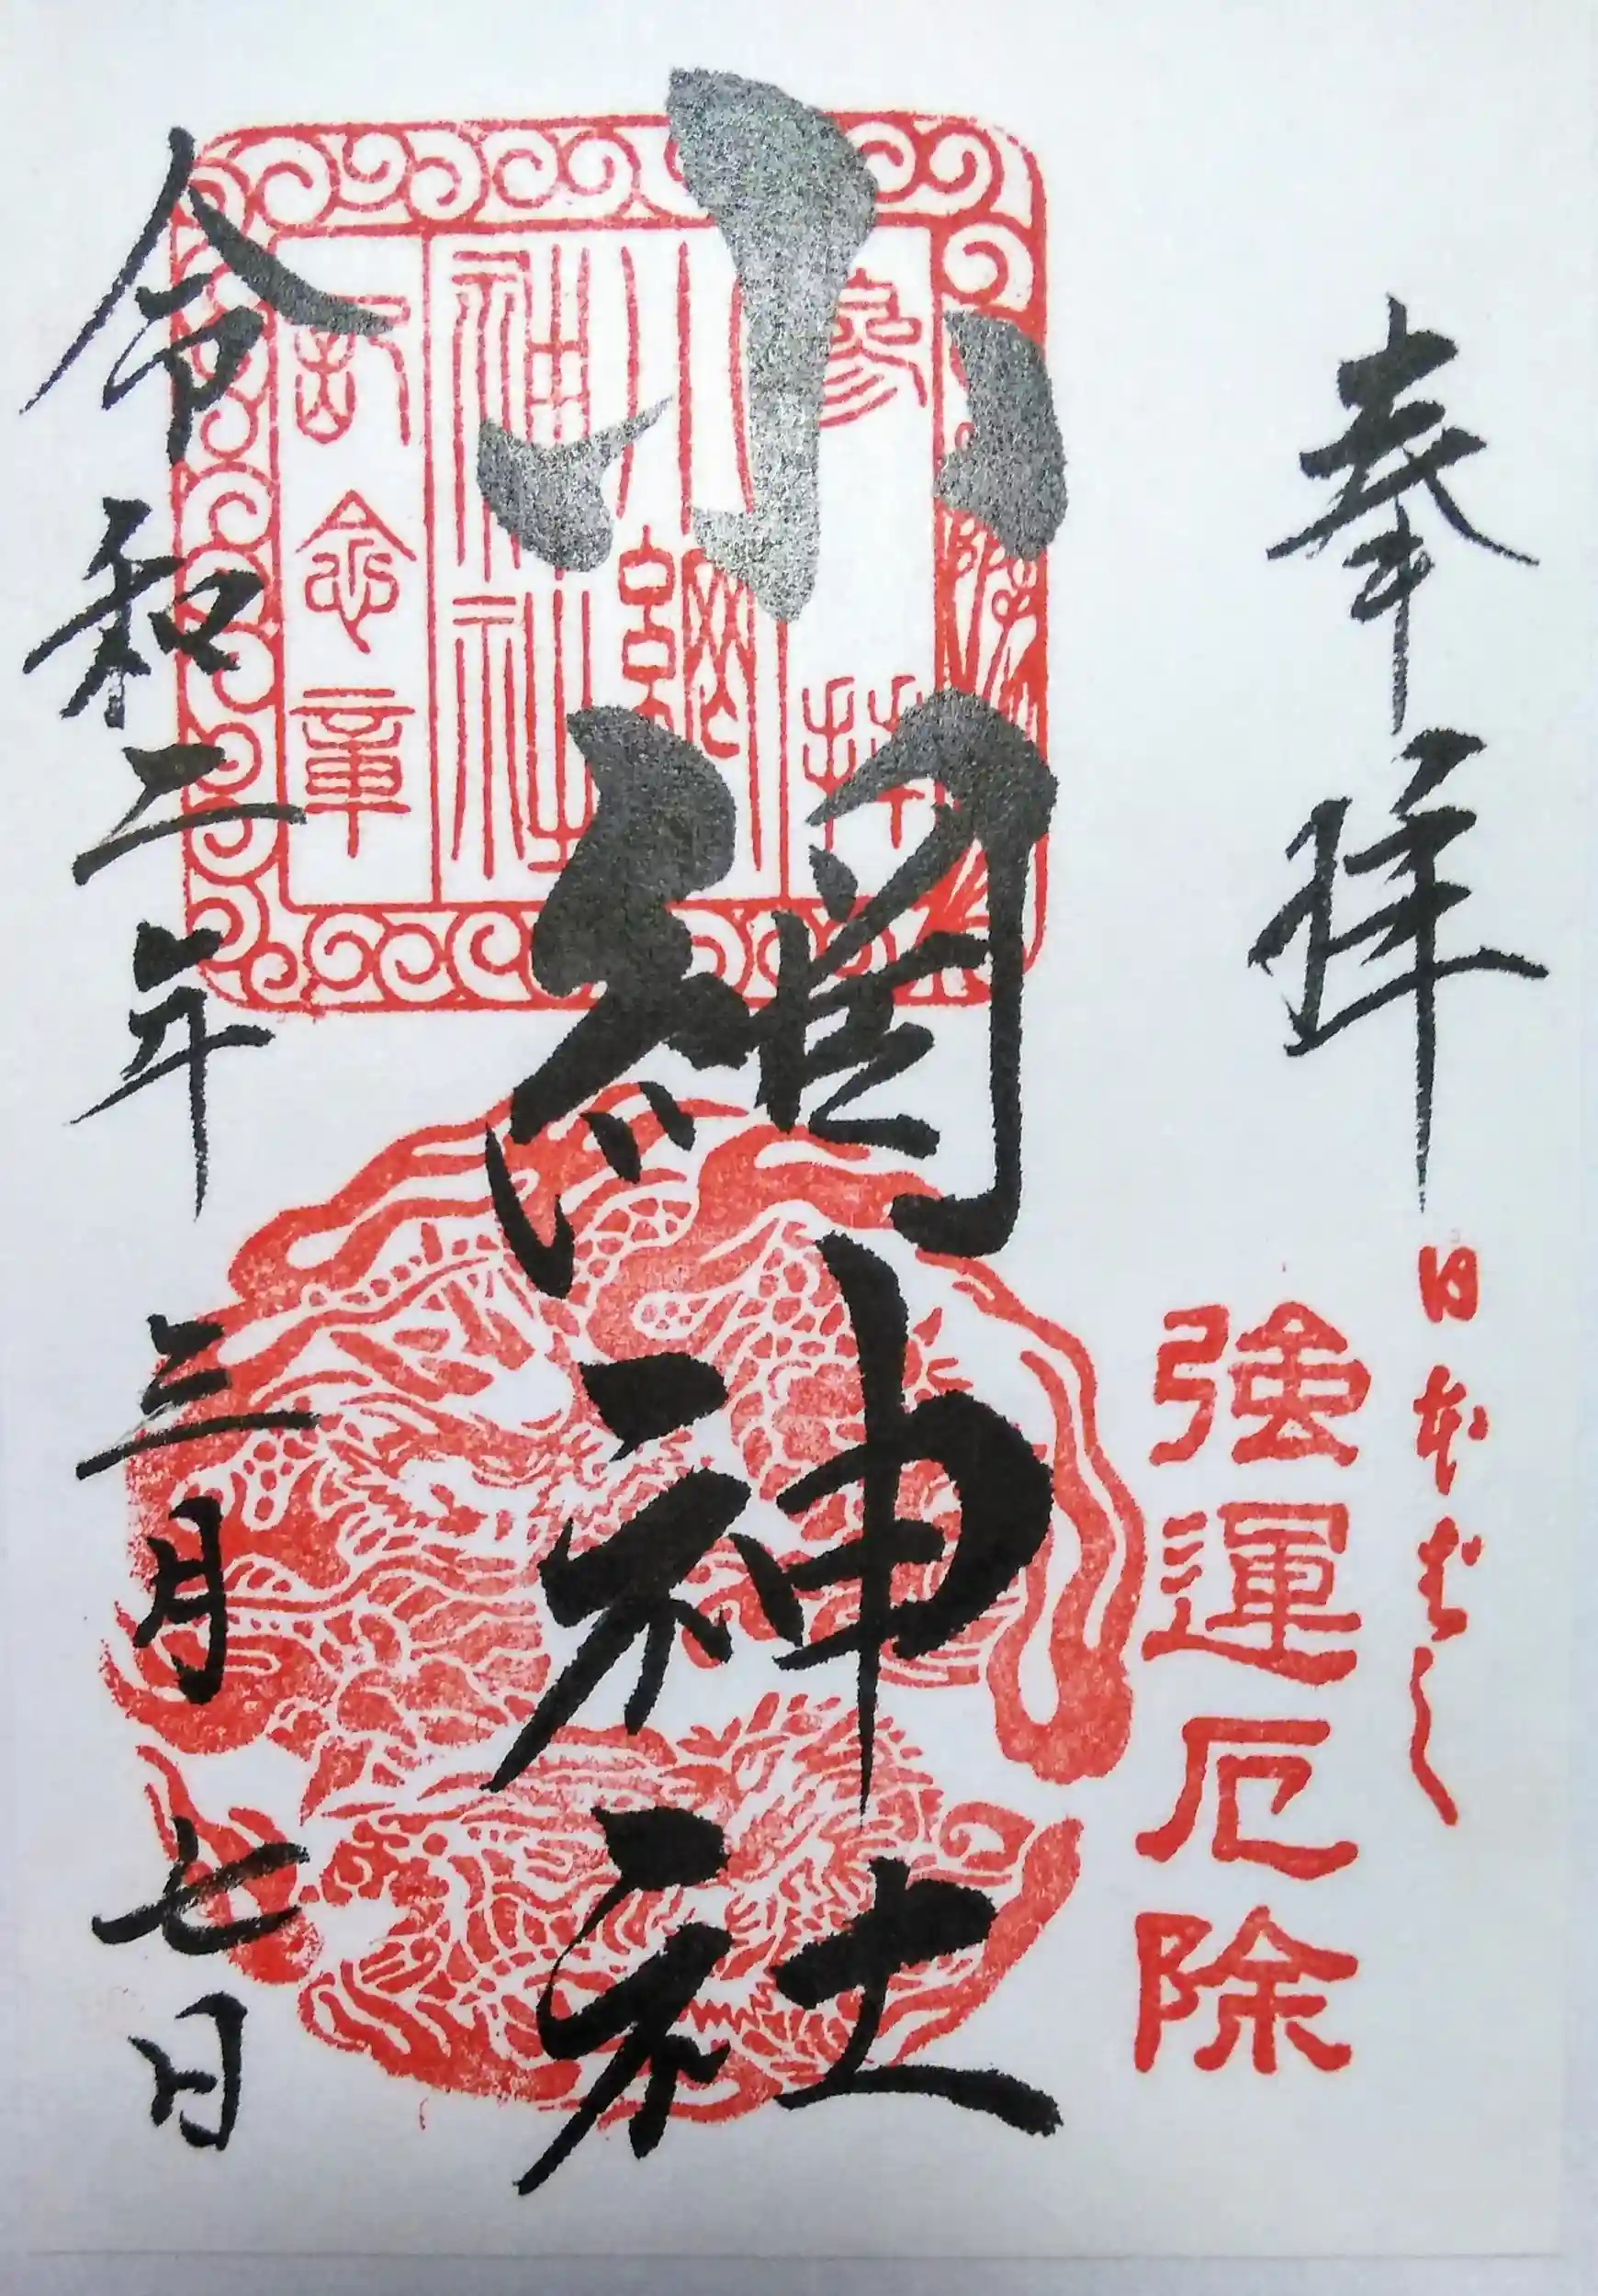 奉拝
日本ばし
強運厄除
小網神社
参拝
小網神社
記念章
令和二年三月七日